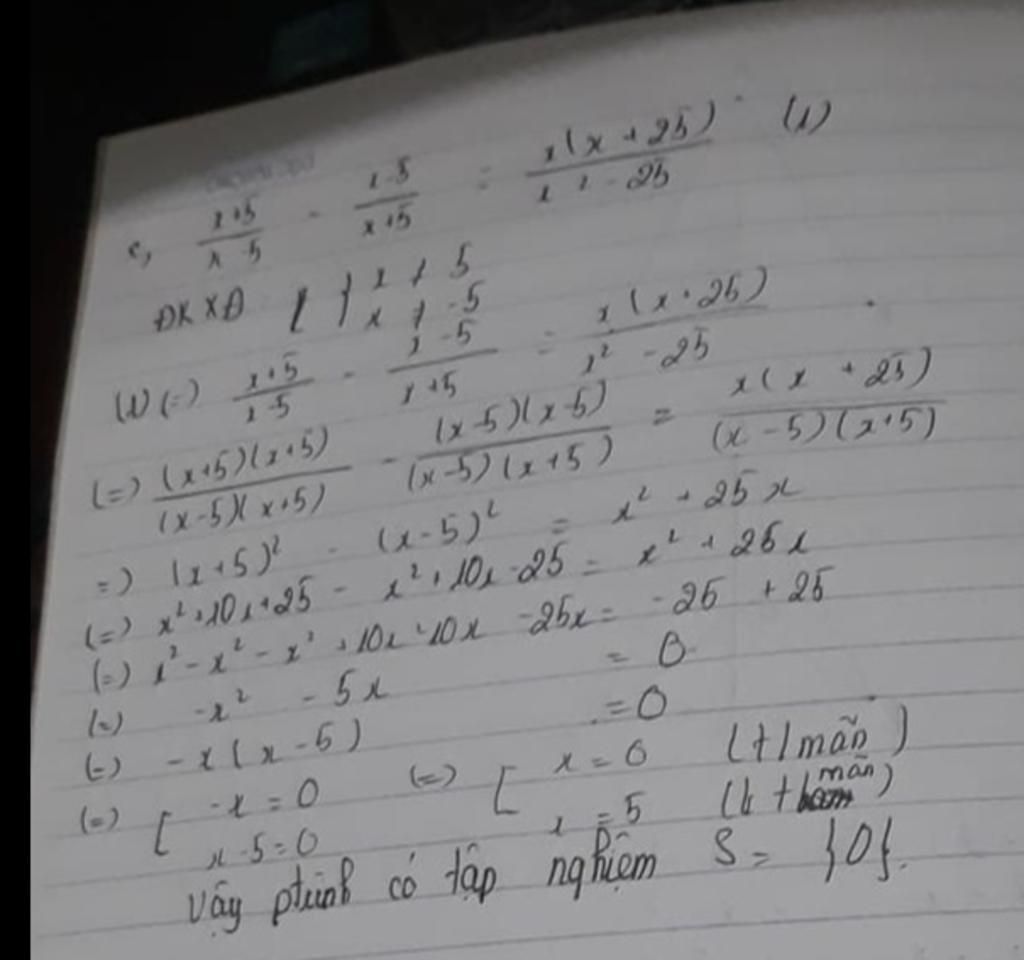 c, \frac{x+5}{x-5} - \frac{x-5}{x+5} = \frac{x(x+25)}{x^2-25} (1)
ĐKXĐ { x ≠ 5
x ≠ -5
(1) (=) \frac{x+5}{x-5} - \frac{x-5}{x+5} = \frac{x(x+25)}{x^2-25}
(=) \frac{(x+5)(x+5)}{(x-5)(x+5)} - \frac{(x-5)(x-5)}{(x-5)(x+5)} = \frac{x(x+25)}{(x-5)(x+5)}
=) (x+5)^2 - (x-5)^2 = x^2 + 25x
(=) x^2+10x+25 - x^2+10x-25 = x^2+25x
(=) x^2-x^2-x^2+10x+10x-25x = -25+25
(=) -x^2 - 5x = 0
(=) -x(x-5) = 0
(=) [ -x=0 (=) [ x=0 (t/mãn)
x-5=0 x=5 (k t mãn)
Vậy ptrình có tập nghiệm S = {0}.